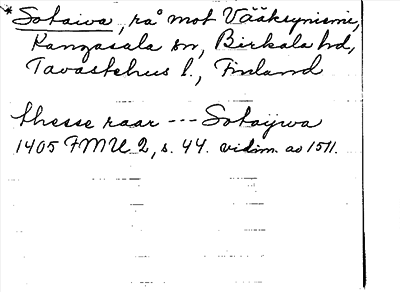 *Sotaiva, rå mot Vääksynismi,
Kangasala sn, Birkala hd,
Tavastehus l., Finland
thesse raar --- Sotaijwa
1405 FMU 2, s. 44. vidim. ao 1511.